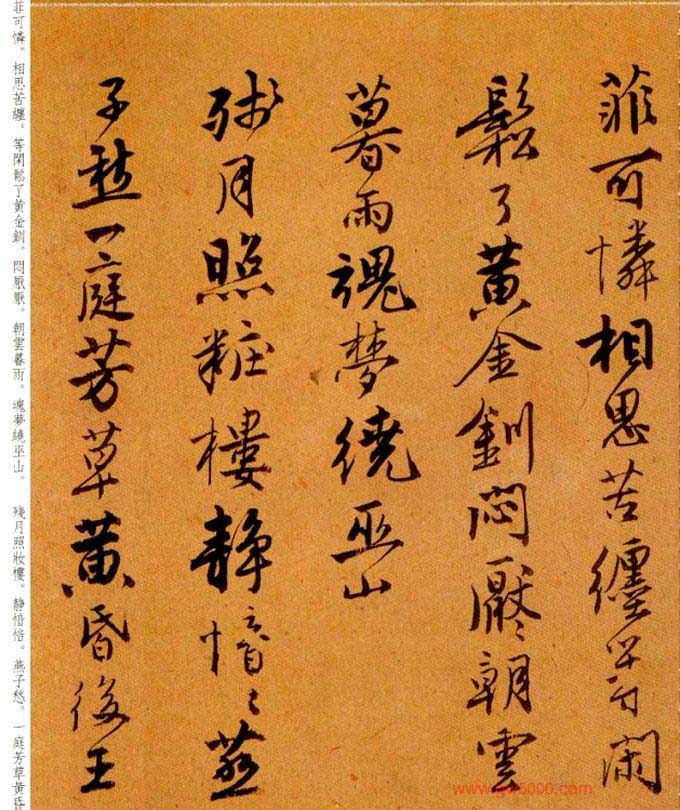 菲可憐相思苦纏等閑
鬆了黃金釧悶厭〻朝雲
暮雨魂夢繞巫山
殘月照粧樓静愔〻燕
子愁一庭芳草黃昏後王
菲可憐。相思苦纏。等閑鬆了黃金釧。悶厭厭。朝雲暮雨。魂夢繞巫山。 殘月照妝樓。静愔愔。燕子愁。一庭芳草黃昏